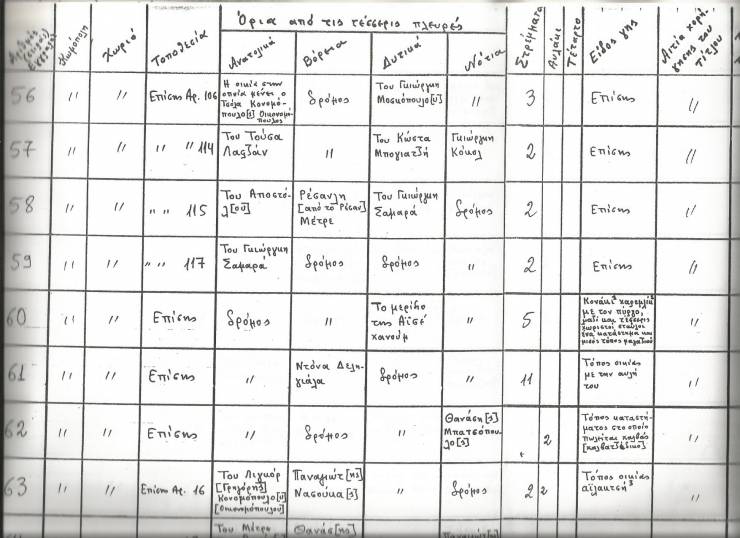 Όρια από τις τέσσερις πλευρές
Κωμόπολη Χωριό Τοποθεσία Ανατολικά Βόρεια Δυτικά Νότια Στρέμματα Αυλάκι Τέταρτο Είδος γης Αιτία χορήγησης του τίτλου
56 〃 〃 Επίσης Αρ. 106 Η οικία στην οποία μένει ο Τσόλα Κονομόπουλο[ς] Οικονομόπουλος δρόμος Του Γκιώργκη Μοσκόπουλο[υ] 〃 3 Επίσης 〃
57 〃 〃 〃 〃 114 Του Τούσα Λαζάν 〃 Του Κώστα Μπογιατζή Γκιώργκη 2 Επίσης 〃
58 〃 〃 〃 〃 115 Του Αποστόλ[ου] Ρέσανλη [από το Ρέσαν] Μέτρε Του Γκιώργκη Σαμαρά δρόμος 2 Επίσης 〃
59 〃 〃 〃 〃 117 Του Γκιώργκη Σαμαρά δρόμος δρόμος 〃 2 Επίσης 〃
60 〃 〃 Επίσης δρόμος 〃 Το μερίδιο της Αϊσέ χανούμ 〃 5 με τον πύργο, μαζί και τέσσερις χωριστοί στάβλοι ένα κατάστημα και 〃
61 〃 〃 Επίσης 〃 Ντόνα Δεληγιάλα δρόμος 〃 11 Τόπος οικίας με την αυλή του 〃
62 〃 〃 Επίσης 〃 δρόμος 〃 Θανάση[ς] Μπατσόπουλο[ς] 2 Τόπος καταστήματος στο οποίο πωλείται χαλβάς [χαλβατζίδικο] 〃
63 〃 〃 Επίσης Αρ. 16 Του Λιγκόρ [Γρηγόρης] Κονομόπουλο[υ] [Οικονομόπουλου] Παναγιώτ[ης] Νασούκα[ς] 〃 δρόμος 2 2 Τόπος οικίας 〃
Του Μέτρε Θανάσ[ης]